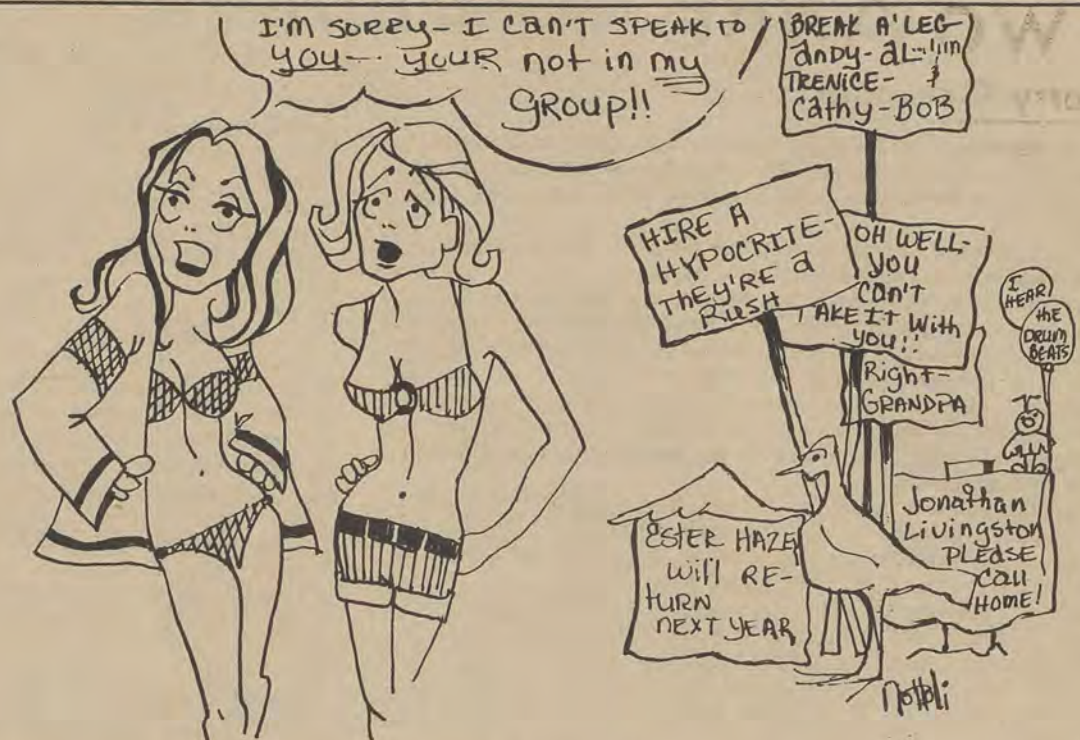 I'M SORRY- I CAN'T SPEAK TO
YOU-- YOUR not in my
GROUP!!
BREAK A' LEG-
andy-
TRENICE- &
Cathy-BOB
HIRE A
HYPOCRITE-
THEY'RE a
RUSH
OH WELL-
YOU
CAN'T
TAKE IT With
YOU!!
Right-
GRANDPA
I
HEAR
the
DRUM
BEATS
ESTER HAZE
Will RE-
TURN
NEXT YEAR
Jonathan
Livingston
PLEASE
Call
HOME!